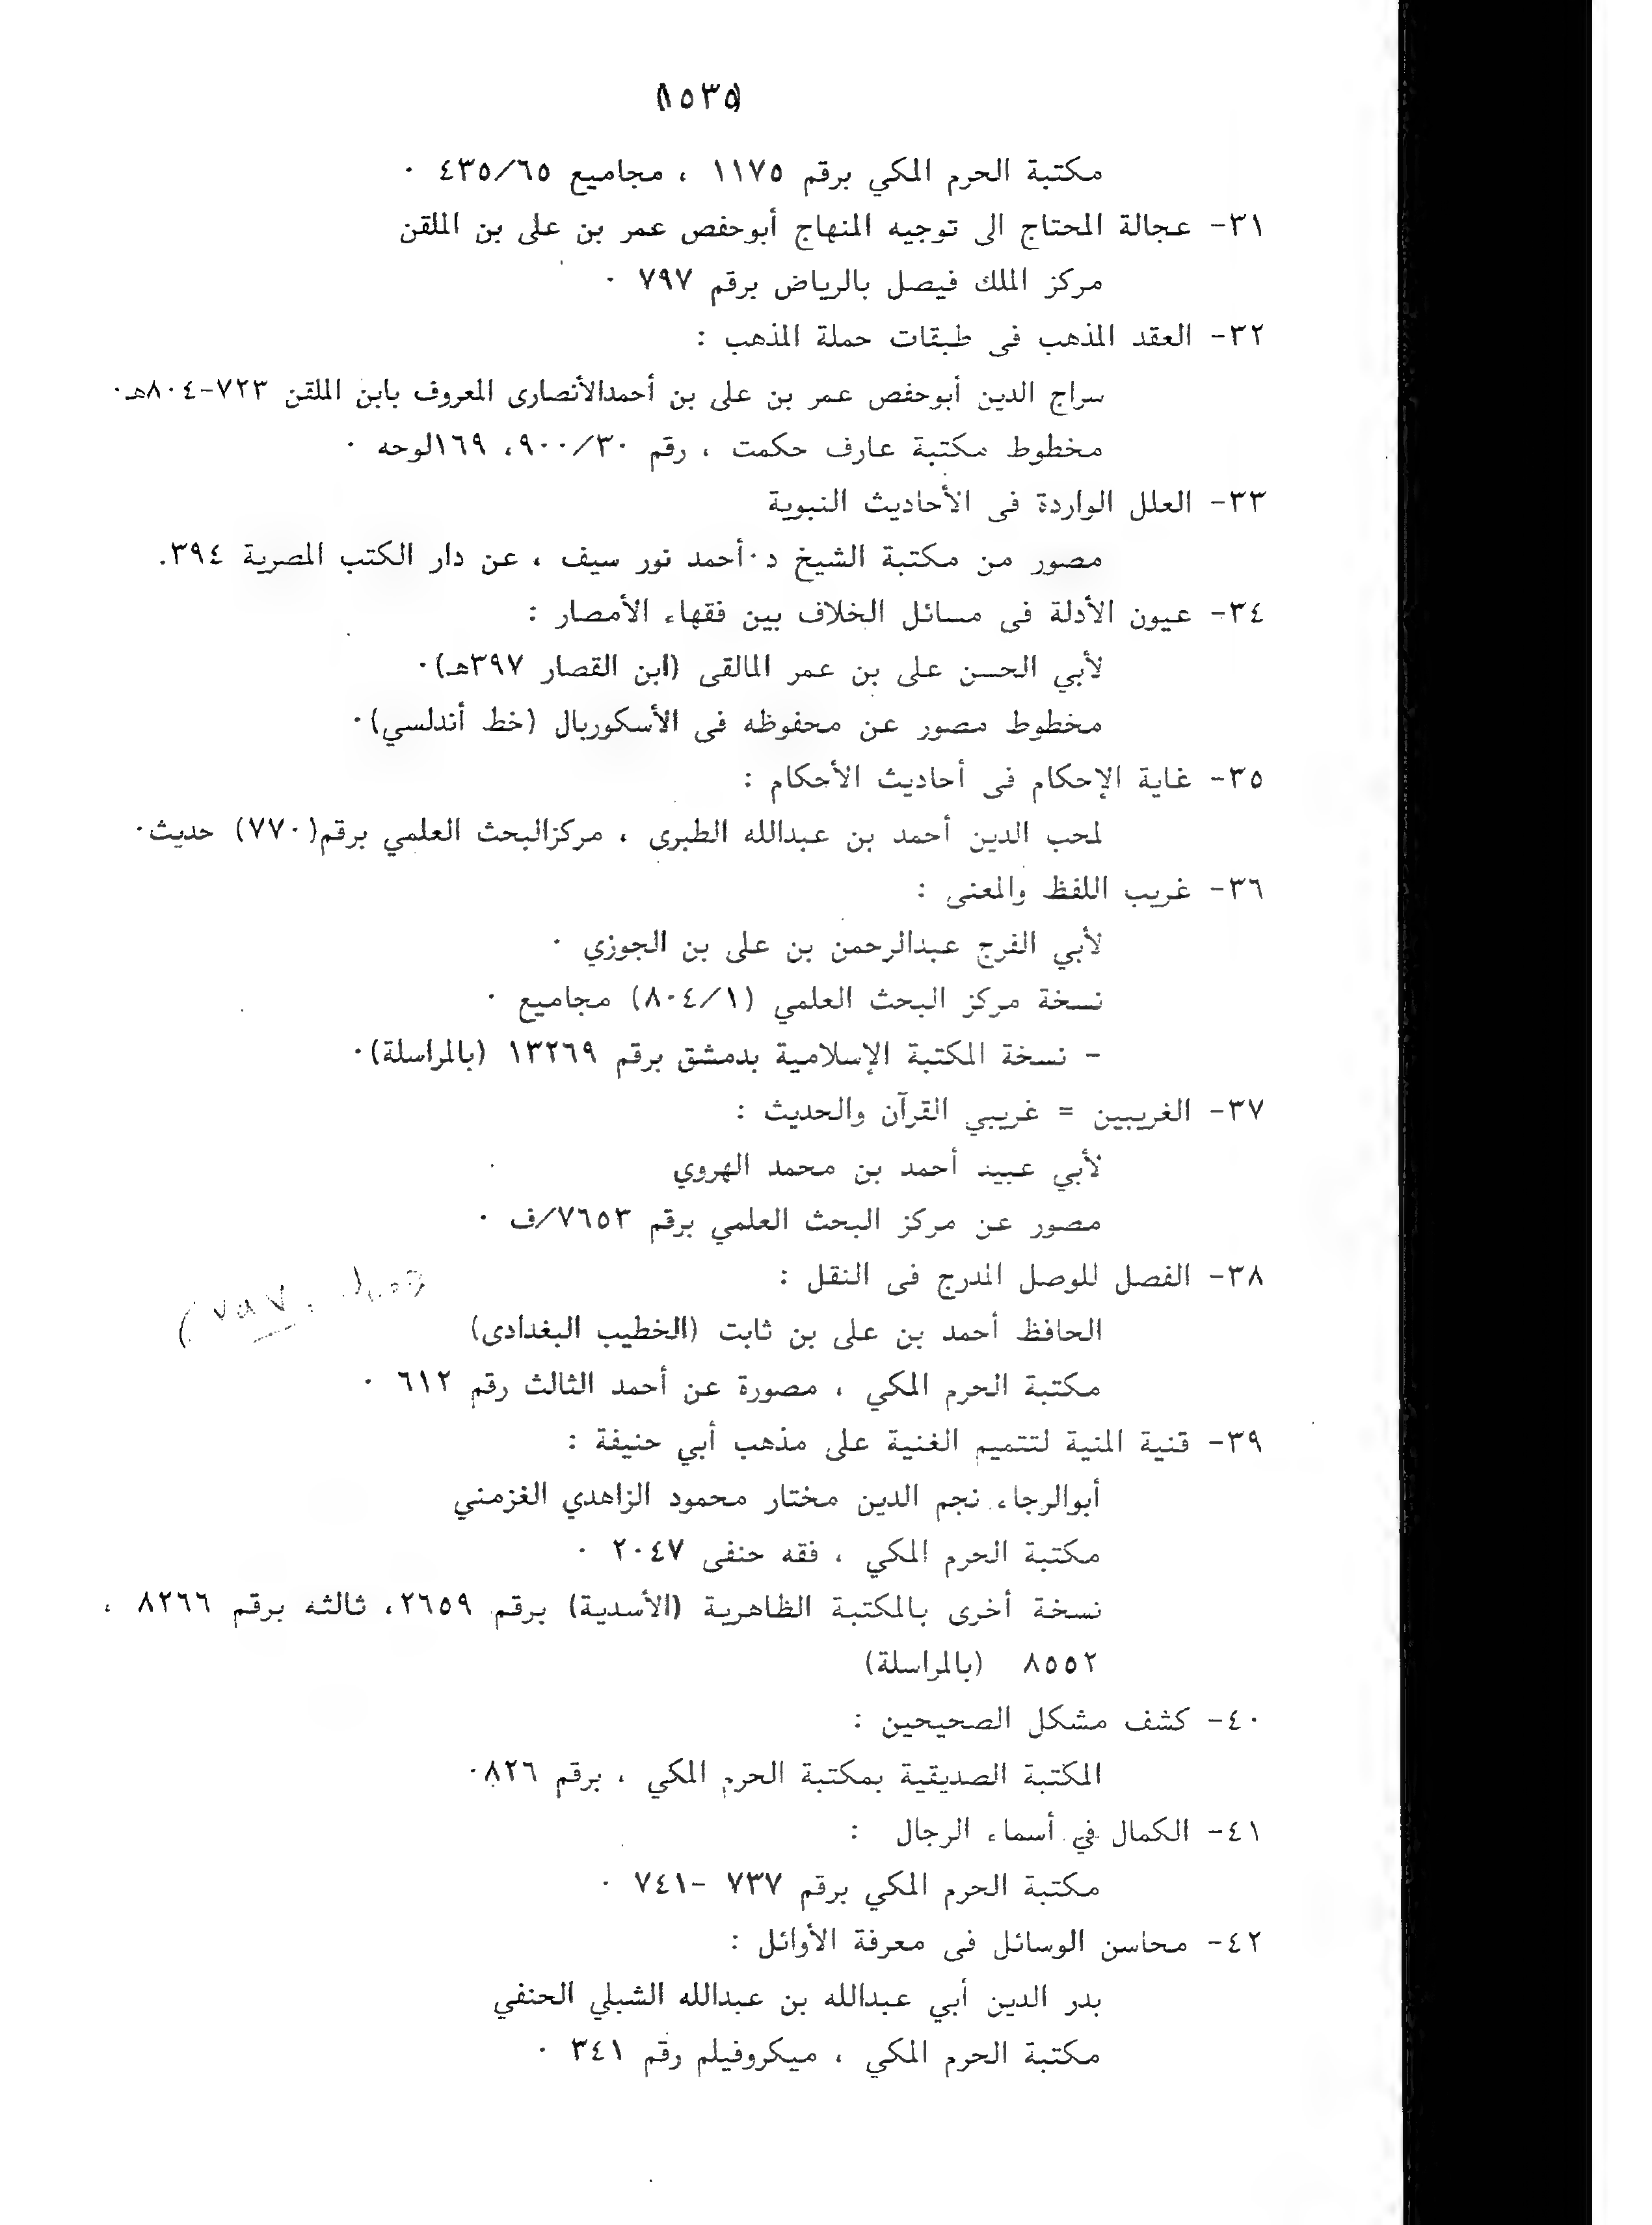 (١٥٣٥)
مكتبة الحرم المكي برقم ١١٧٥ ، مجاميع ٤٣٥/٦٥ ٠
٣١- عجالة المحتاج الى توجيه المنهاج أبوحفص عمر بن على بن الملقن
مركز الملك فيصل بالرياض برقم ٧٩٧ ٠
٣٢- العقد المذهب فى طبقات حملة المذهب :
سراج الدين أبوحفص عمر بن على بن أحمدالأنصارى المعروف بابن الملقن ٧٢٣-٨٠٤هـ٠
مخطوط مكتبة عارف حكمت ، رقم ٩٠٠/٣٠، ١٦٩لوحه ٠
٣٣- العلل الواردة فى الأحاديث النبوية
مصور من مكتبة الشيخ د٠أحمد نور سيف ، عن دار الكتب المصرية ٣٩٤.
٣٤- عيون الأدلة فى مسائل الخلاف بين فقهاء الأمصار :
لأبي الحسن على بن عمر المالقى (ابن القصار ٣٩٧هـ)٠
مخطوط مصور عن محفوظه فى الأسكوربال (خط أندلسي)٠
٣٥- غاية الإحكام فى أحاديث الأحكام :
لمحب الدين أحمد بن عبدالله الطبرى ، مركزالبحث العلمي برقم(٧٧٠) حديث٠
٣٦- غريب اللفظ والمعنى :
لأبي الفرج عبدالرحمن بن على بن الجوزي ٠
نسخة مركز البحث العلمي (٨٠٤/١) مجاميع ٠
- نسخة المكتبة الإسلامية بدمشق برقم ١٣٢٦٩ (بالمراسلة)٠
٣٧- الغريبين = غريبي القرآن والحديث :
لأبي عبيد أحمد بن محمد الهروي
مصور عن مركز البحث العلمي برقم ٧٦٥٣/ف ٠
٣٨- الفصل للوصل المدرج فى النقل :
الحافظ أحمد بن على بن ثابت (الخطيب البغدادى)
مكتبة الحرم المكي ، مصورة عن أحمد الثالث رقم ٦١٢ ٠
٣٩- قنية المنية لتتميم الغنية على مذهب أبي حنيفة :
أبوالرجاء نجم الدين مختار محمود الزاهدي الغزمني
مكتبة الحرم المكي ، فقه حنفى ٢٠٤٧ ٠
نسخة أخرى بالمكتبة الظاهرية (الأسدية) برقم ٢٦٥٩، ثالثه برقم ٨٢٦٦ ،
٨٥٥٢ (بالمراسلة)
٤٠- كشف مشكل الصحيحين :
المكتبة الصديقية بمكتبة الحرم المكي ، برقم ٨٢٦٠
٤١- الكمال في أسماء الرجال :
مكتبة الحرم المكي برقم ٧٣٧ -٧٤١ ٠
٤٢- محاسن الوسائل فى معرفة الأوائل :
بدر الدين أبي عبدالله بن عبدالله الشبلي الحنفي
مكتبة الحرم المكي ، ميكروفيلم رقم ٣٤١ ٠